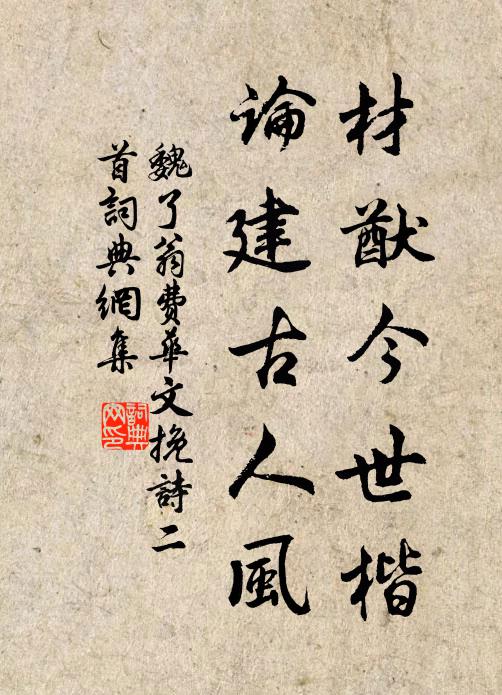 材猷今世楷
論建古人風
魏了翁費華文挽詩二
首詞典網集
詞典
网印